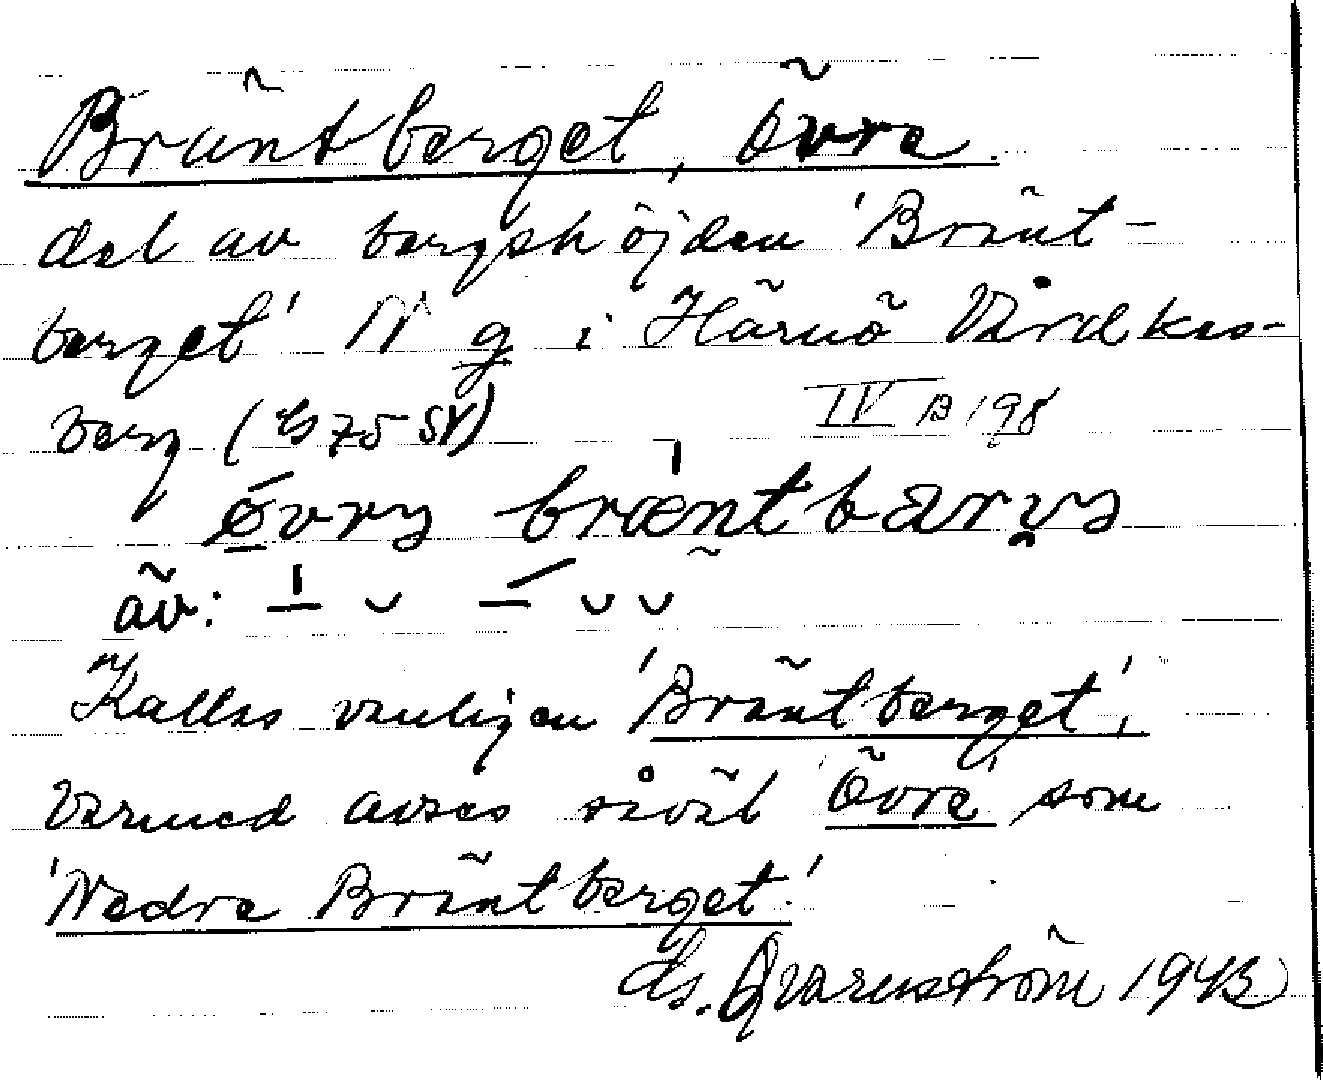 Bräntberget, Övre
del av bergshöjden 'Bränt-
berget' N g i Härnö Vårdkas-
berg (Es 75 SV) IV B 198
øvrɐ bræntbærɣɐ
äv:
Kallas vanligen 'Bräntberget',
varmed avses såväl 'Övre' som
'Nedre Bräntberget.'
Es. Qvarnström 1943